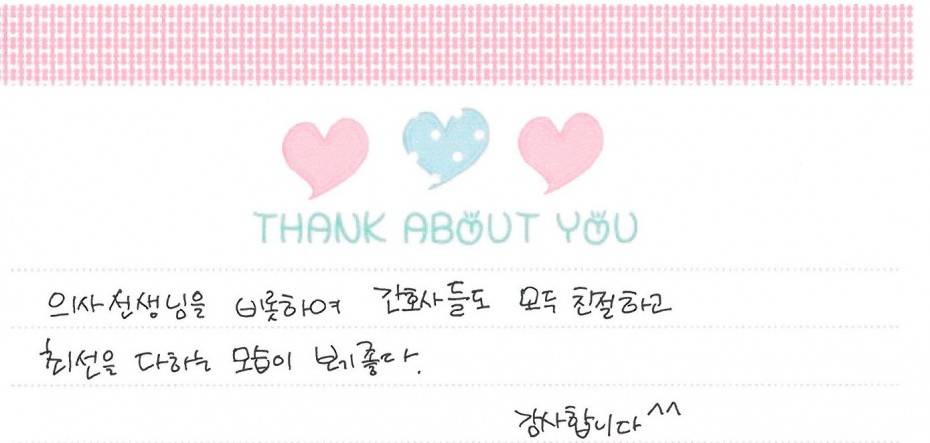 THANK ABOUT YOU
의사선생님을 비롯하여 간호사들도 모두 친절하고
최선을 다하는 모습이 보기좋다.
감사합니다^^